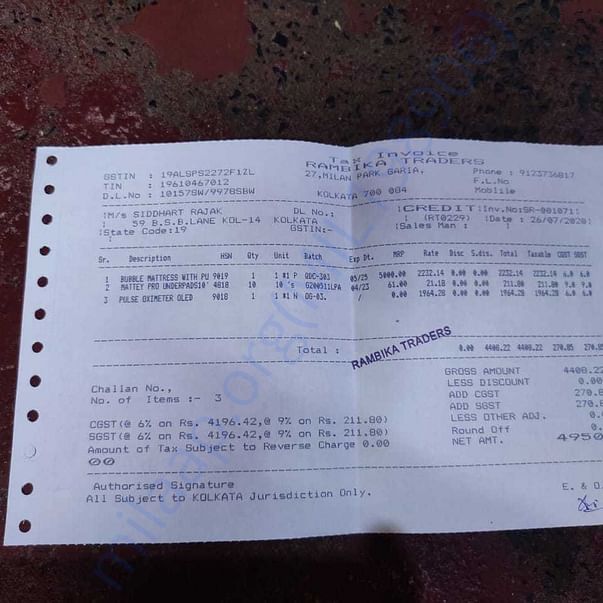 Tax Invoice
RAMBIKA TRADERS
27,MILAN PARK GARIA,
KOLKATA 700 084
GSTIN : 19ALSPS2272F1ZL
TIN : 19610467012
D.L.No : 10157SW/9978SBW
Phone : 9123736817
F.L.No
Mobile
M/s SIDDHART RAJAK
59 B.S.B.LANE KOL-14 KOLKATA
State Code:19
DL No.:
GSTIN:-
CREDIT Inv.No:SR-001071
(RT0229) Date : 26/07/2020
Sales Man :
Sr. Description HSN Qty Unit Batch Exp Dt. MRP Rate Disc S.dis. Total Taxable CGST SGST
1 BUBBLE MATTRESS WITH PU 9019 1 1 #1 P QDC-303 05/25 5000.00 2232.14 0.00 0.00 2232.14 2232.14 6.0 6.0
2 MATTEY PRO UNDERPADS10' 4818 10 10 's G200511LPA 04/23 61.00 21.18 0.00 0.00 211.80 211.80 9.0 9.0
3 PULSE OXIMETER OLED 9018 1 1 #1 N OG-03. / 0.00 1964.28 0.00 0.00 1964.28 1964.28 6.0 6.0
Total : 0.00 4408.22 4408.22 270.85 270.85
RAMBIKA TRADERS
Challan No.,
No. of Items :- 3
CGST(@ 6% on Rs. 4196.42,@ 9% on Rs. 211.80)
SGST(@ 6% on Rs. 4196.42,@ 9% on Rs. 211.80)
Amount of Tax Subject to Reverse Charge 0.00
GROSS AMOUNT 4408.22
LESS DISCOUNT 0.00
ADD CGST 270.8
ADD SGST 270.8
LESS OTHER ADJ. 0.
Round Off 0.
NET AMT. 4950
Authorised Signature
All Subject to KOLKATA Jurisdiction Only.
E. & O.